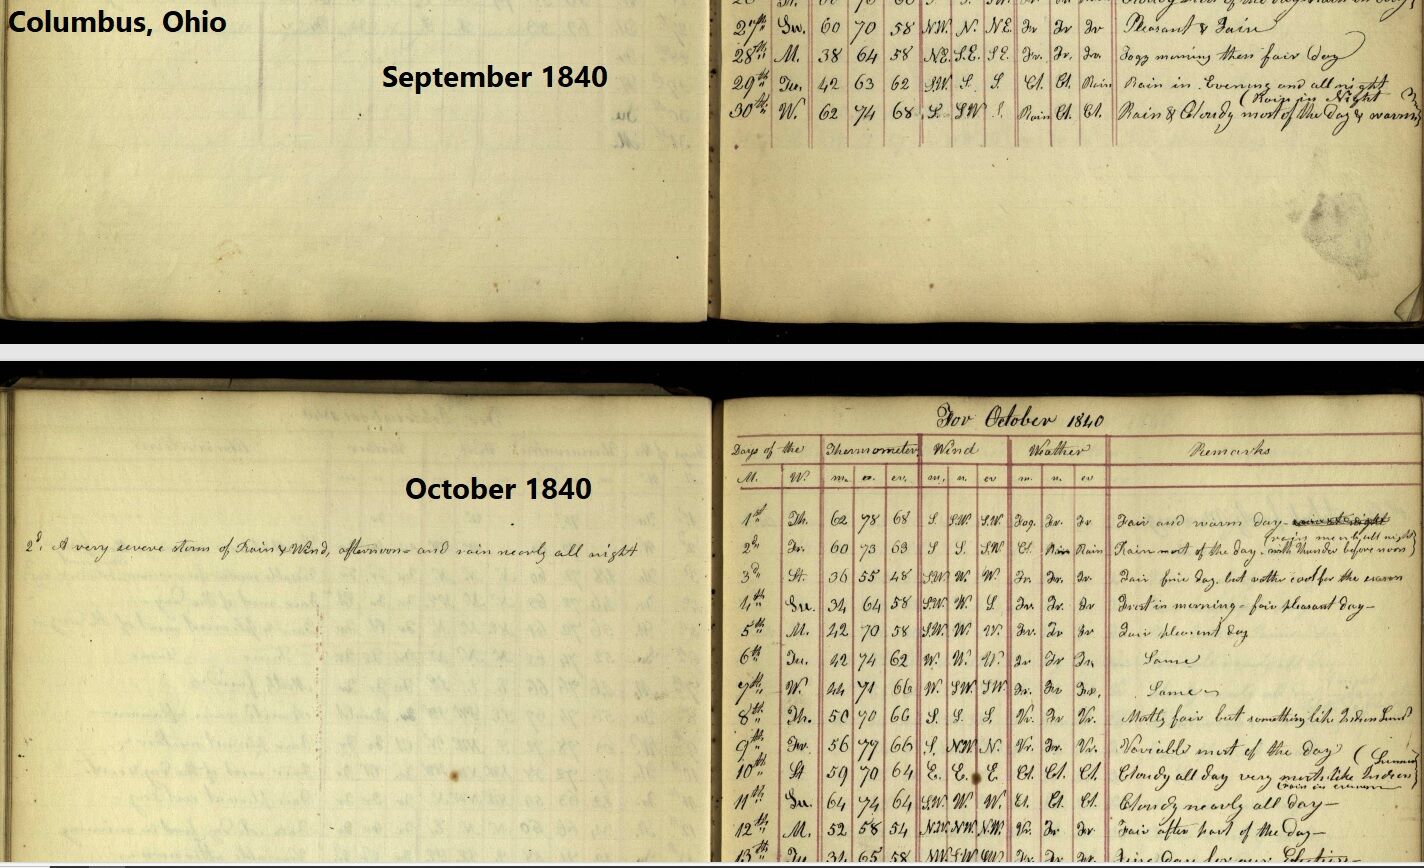 Columbus, Ohio
September 1840
27th Su. 60 70 58 N.W. N. N.E. Fr Fr Fr Pleasant & Fair
28th M. 38 64 58 N.E. S.E. S.E. Fr. Fr. Fr. Fogg morning then fair day
29th Tu. 42 63 62 S.W. S. S. Ct. Ct. Rain Rain in Evening and all night
(Rain in Night
30th W. 62 74 68 S. S.W S. Rain Ct. Ct. Rain & Cloudy most of the day & warm
For October 1840
Days of the Thermometer Wind Weather Remarks
M. W. m. n. ev. m. n. ev m. n. ev
October 1840
1st Th. 62 78 68 S. S.W. S.W. Fog. Fr. Fr Fair and warm day-
(rain nearly all night)
2d Fr. 60 73 63 S. S. S.W Ct. Rain Rain Rain most of the day, with thunder before noon
2d. A very severe storm of Rain & Wind, afternoon- and rain nearly all night
3d St. 36 55 48 S.W. W. W. Fr. Fr. Fr. Fair fine day, but rather cool for the season
4th Su. 34 64 58 S.W. W. S. Fr. Fr. Fr Frost in morning - fair pleasant day-
5th M. 42 70 58 S.W. W. W. Fr. Fr Fr Fair pleasent day
6th Tu. 42 74 62 W. W. W. Fr Fr Fr Same
7th W. 44 71 66 W. S.W. S.W. Fr. Fr Fr. Same
8th Th. 50 70 66 S. S. S. Vr. Fr Vr. Mostly fair but something like Indian Sum
9th Fr. 56 77 66 S. N.W. N. Vr. Fr. Vr. Variable most of the day
(Summer
10th St 59 70 64 E. E. E Ct. Ct. Ct. Cloudy all day very much like Indian
(rain in evening
11th Su. 64 74 64 S.W. W. W. Ct. Ct. Ct. Cloudy nearly all day-
12th M. 52 58 54 N.W. N.W. N.W. Vr. Fr Fr Fair after part of the day-
13th Tu 34 65 58